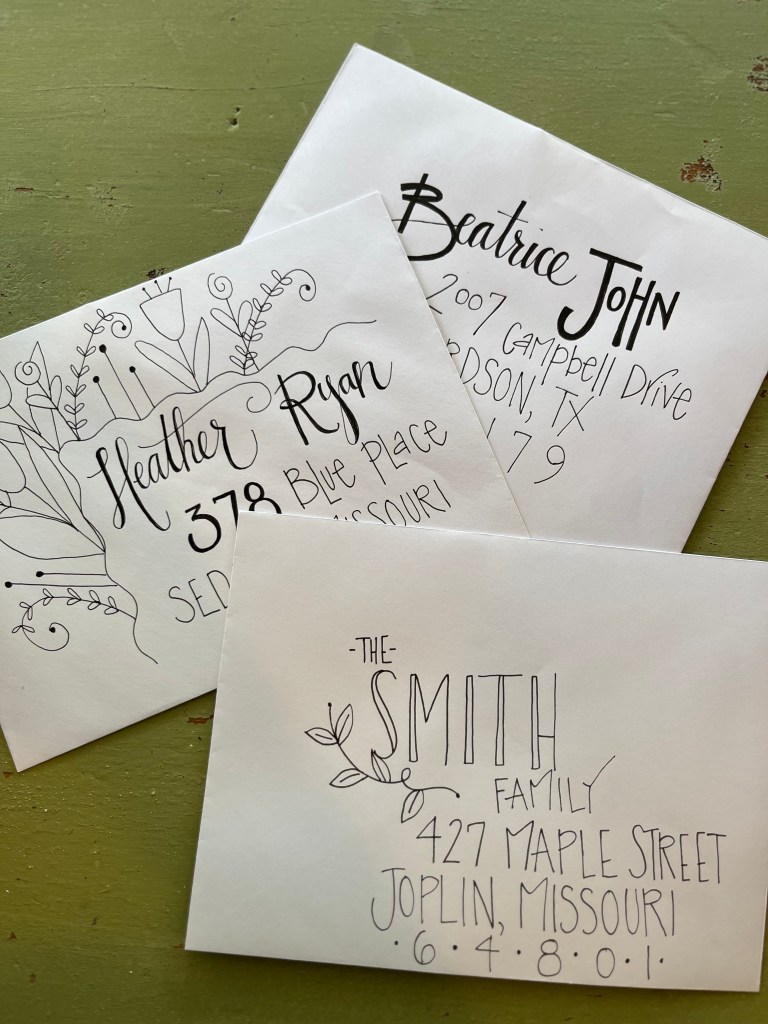 Beatrice JOHN
2007 Campbell Drive
RDSON, TX
79
Heather Ryan
378 BLUE PLACE
SED ISSOURI
-THE-
SMITH
FAMILY
427 MAPLE STREET
JOPLIN, MISSOURI
·6·4·8·0·1·